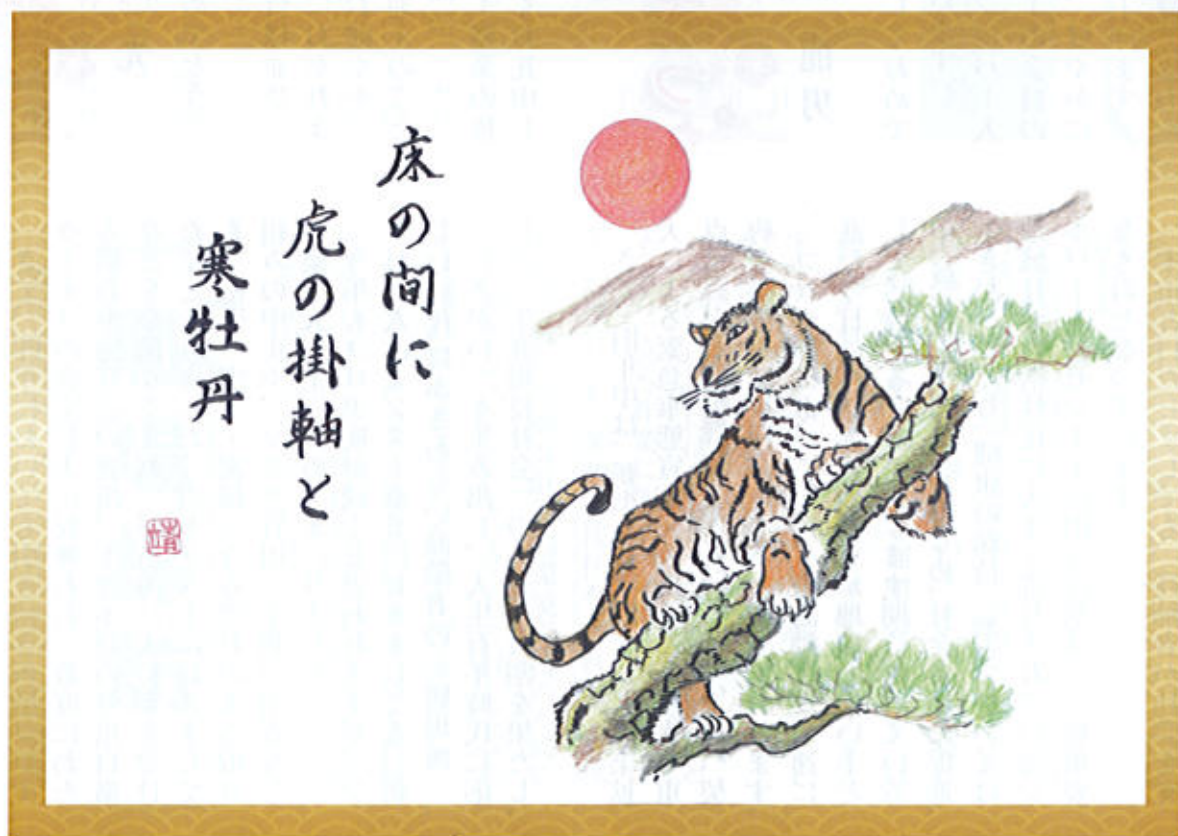 床の間に
虎の掛軸と
寒牡丹
靖